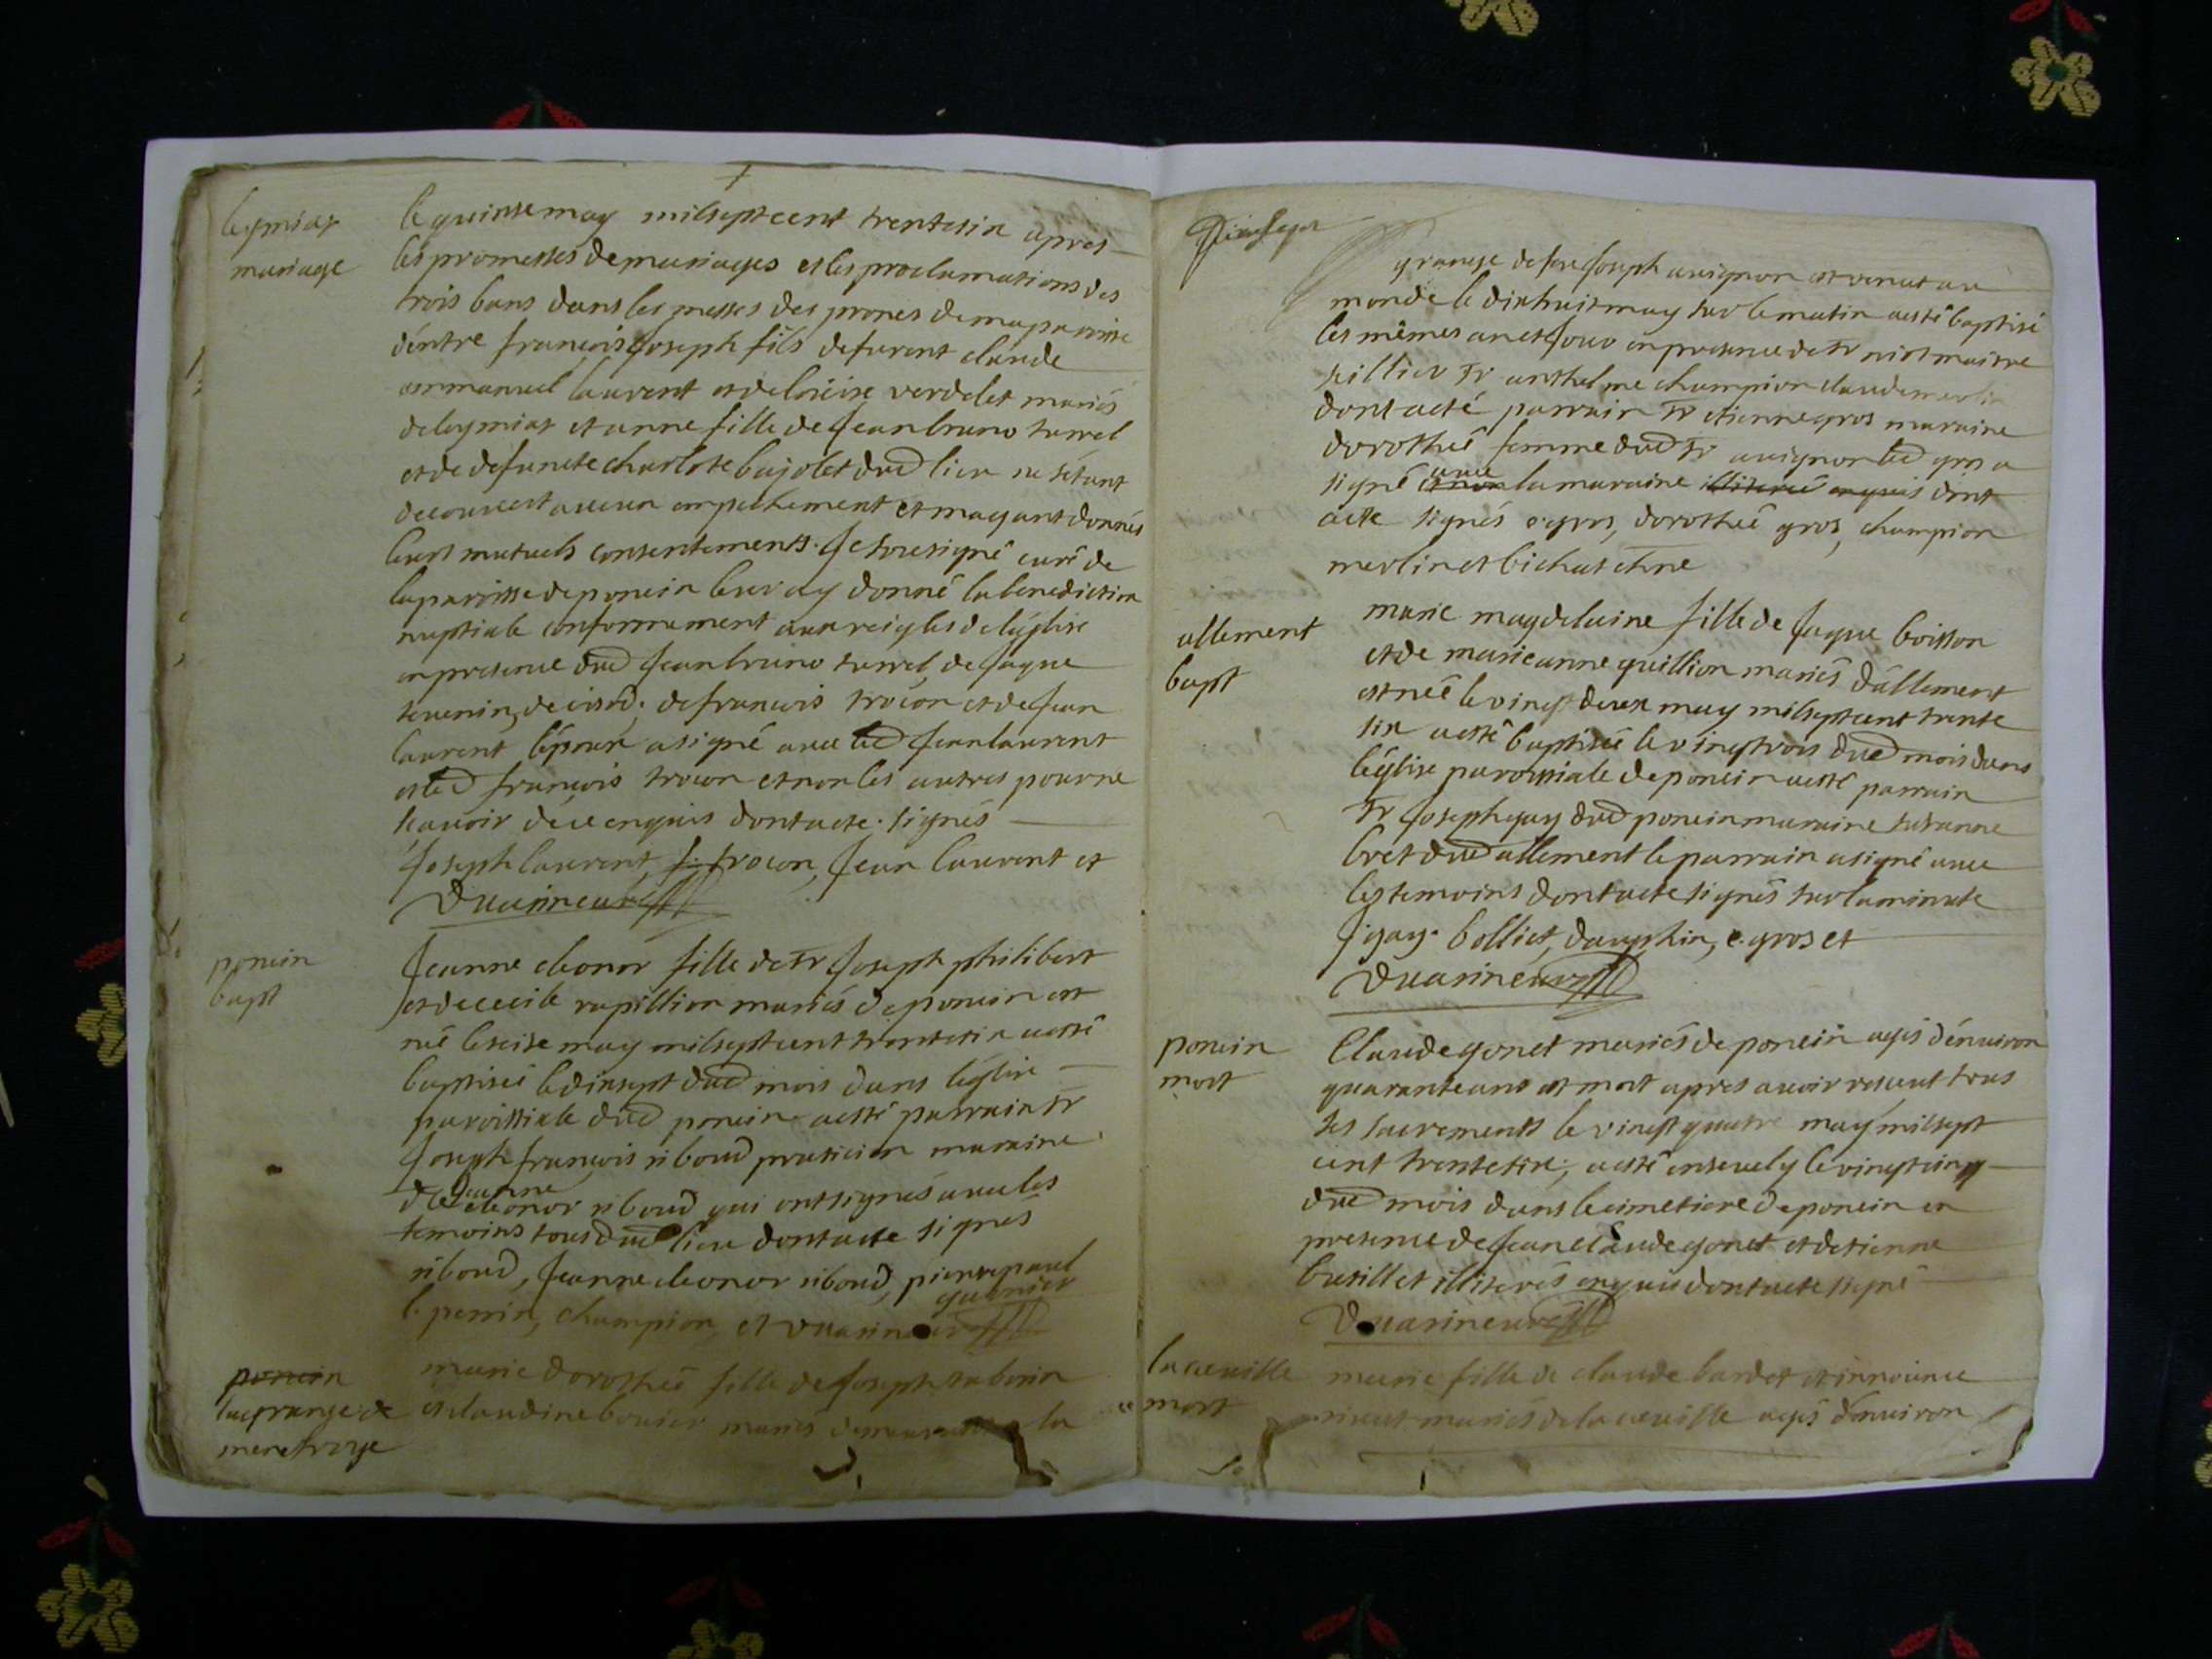 leymiat
mariage
le quinse may mil sept cent trente six apres
les promesses de mariages et les proclamations des
trois bans dans les messes des prones de ma paroisse
d'entre francois Joseph fils de furent claude
emmanuel laurent et de verdelet mariés
de leymiat et anne fille de Jean bruno turrel
et de defuncte charlote bajolet dud lieu ne s'etant
decouvert aucun empechement et mayant donnés
leurs mutuels consentements. Je sousigné curé de
la paroisse de poncin leur ay donné la benediction
nuptiale conformement aux reigles de l'église
en presence dud Jean bruno turrel, de Jaque
de francois trocon et de Jean
laurent l'epoux a signé avec led Jean laurent
et led francois trocon et non les autres pour ne
scavoir de ce enquis dont acte. signés
Joseph laurent, f. trocon, Jean laurent et
Duarin curé
poncin
bapt
Jeanne eleonor fille de sr Joseph philibert
et de cecile rapillion mariés de poncin est
née le seise may mil sept cent trente six a esté
baptisée le dix sept dud mois dans l'église
paroissiale dud poncin a esté parrain sr
Joseph francois riboud praticien maraine
dlle Jeanne
eleonor riboud qui ont signés avec les
temoins tous dud lieu dont acte signés
riboud, Jeanne eleonor riboud, pierre paul
guernier
b. perrin, champion, et Duarin curé
poncin
la grange de
marie dorothée fille de Joseph
et claudine bouvier mariés la
grange de sire Joseph avignon est venut au
monde le dix huit may sur le matin a esté baptisé
les mêmes an et Jour en presence de sr maitre
sr anthelme champion claude merlin
dont a eté parrain sr etienne gros maraine
dorothée femme dud sr avignon led gros a
signé et non avec la maraine illiterée enquis dont
acte signés e. gros, dorothée gros, champion
merlin et bichat
allement
bapt
marie magdelaine fille de Jaque boisson
et de marie anne quillion mariés d'allement
est née le vingt deux may mil sept cent trente
six a esté baptisée le vingt trois dud mois dans
l'église paroissiale de poncin a esté parrain
sr Joseph gay dud poncin maraine susanne
bret dud allement le parrain a signé avec
les temoins dont acte signés sur la minute
J. gay. bolliet, dauphin, e. gros et
Duarin curé
poncin
mort
Claude gonet mariés de poncin agés d'environ
quarante ans est mort apres avoir resceut tous
ses sacrements le vingt quatre may mil sept
cent trente six; a esté ensevely le vingt cinq
dud mois dans le cimetiere de poncin en
presence de Jean claude gonet et d'etienne
busillet illiterés enquis dont acte signé
Duarin curé
la cueille
mort
marie fille de claude bardet et innocence
mariés de la cueille agés d'environ